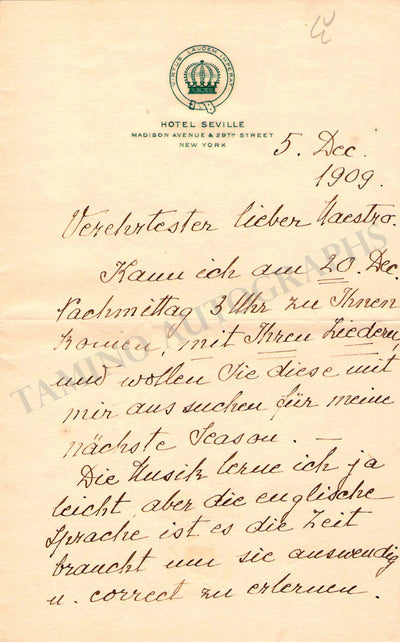 VIRTUS LAUDEM IMPERAT
HOTEL SEVILLE
MADISON AVENUE & 29TH STREET
NEW YORK
5. Dec.
1909.
Verehrtester lieber Maestro.
Kann ich am 20. Dec.
Nachmittag 3 Uhr zu Ihnen
komen, mit Ihren Liedern,
und wollen Sie diese mit
mir aus suchen für meine
nächste Season. —
Die Musik lerne ich ja
leicht, aber die englische
Sprache ist es die Zeit
braucht um sie auswendig
u. correct zu erlernen.
TAMINO AUTOGRAPHS